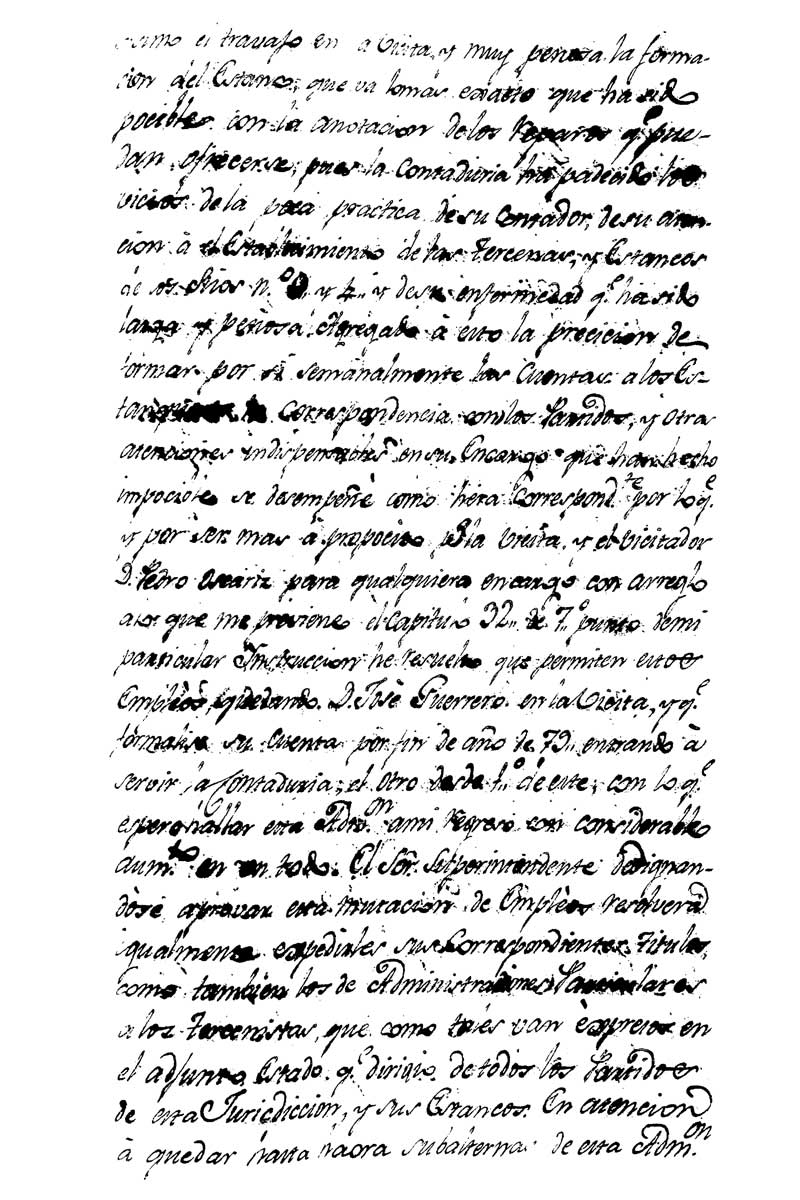 el travajo en la Vicita, y muy penosa la forma-
cion del Estanco, que va lo mas exacto que ha sido
pocible con la anotacion de los Reparos q.e pue-
dan ofrecerse, pues la Contaduria ha padecido los
vicios de la poca practica de su Contador, de su aten-
cion à el Establecimiento de las Tercenas, y Estancos
de los Rios n.o y 4.. y de su enfermedad q.e ha sido
larga y penosa. Agregado à esto la precicion de
formar por si semanalmente las Cuentas a los Es-
Correspondencia con los Partidos, y otras
atenciones indispensables en su Encargo que han hecho
impocible se desempeñe como hera Correspond.te por lo q.e
y por ser mas à propocito p.a la Vicita, y el Vicitador
D. Pedro para qualquiera encargo con arreglo
a lo que me previene el Capitulo 32.. de 7.o punto de mi
particular Instruccion he resuelto que permuten estos
Empleos, quedando D. José Guerrero en la Vicita, y q.e
formalise su Cuenta por fin de año de 79.. entrando à
servir la Contaduria, el otro desde 1.o de este, con lo q.e
espero hallar esta Adm.on a mi regreso con considerable
aum.to en un todo. El Sor. Superintendente dedignan-
dose aprovar esta mutacion de Empleos resolverá
igualmente expedirles sus Correspondientes Titulos,
como tambien los de Administradores Particulares
a los Tercenistas, que como tales van expresos en
el adjunto Estado q.e dirigio de todos los Partidos
de esta Juricdiccion, y sus Estancos. En atencion
à quedar hasta haora subalterna de esta Adm.on